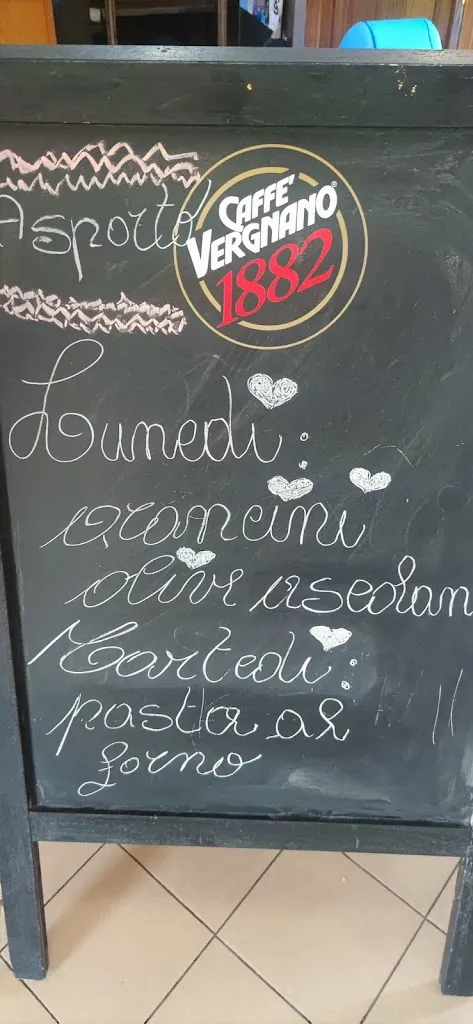 Asporto
CAFFE'
VERGNANO®
1882
Lunedi:
arancini
olive ascolan
Martedi:
pasta al
forno